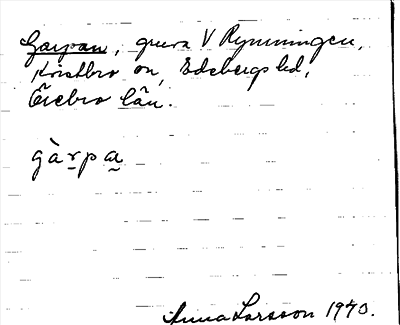 Garpan, gruva V Rymningen,
Kvistbro sn, Edsbergs hd,
Örebro län.
gàrpa
Anna Larsson 1970.